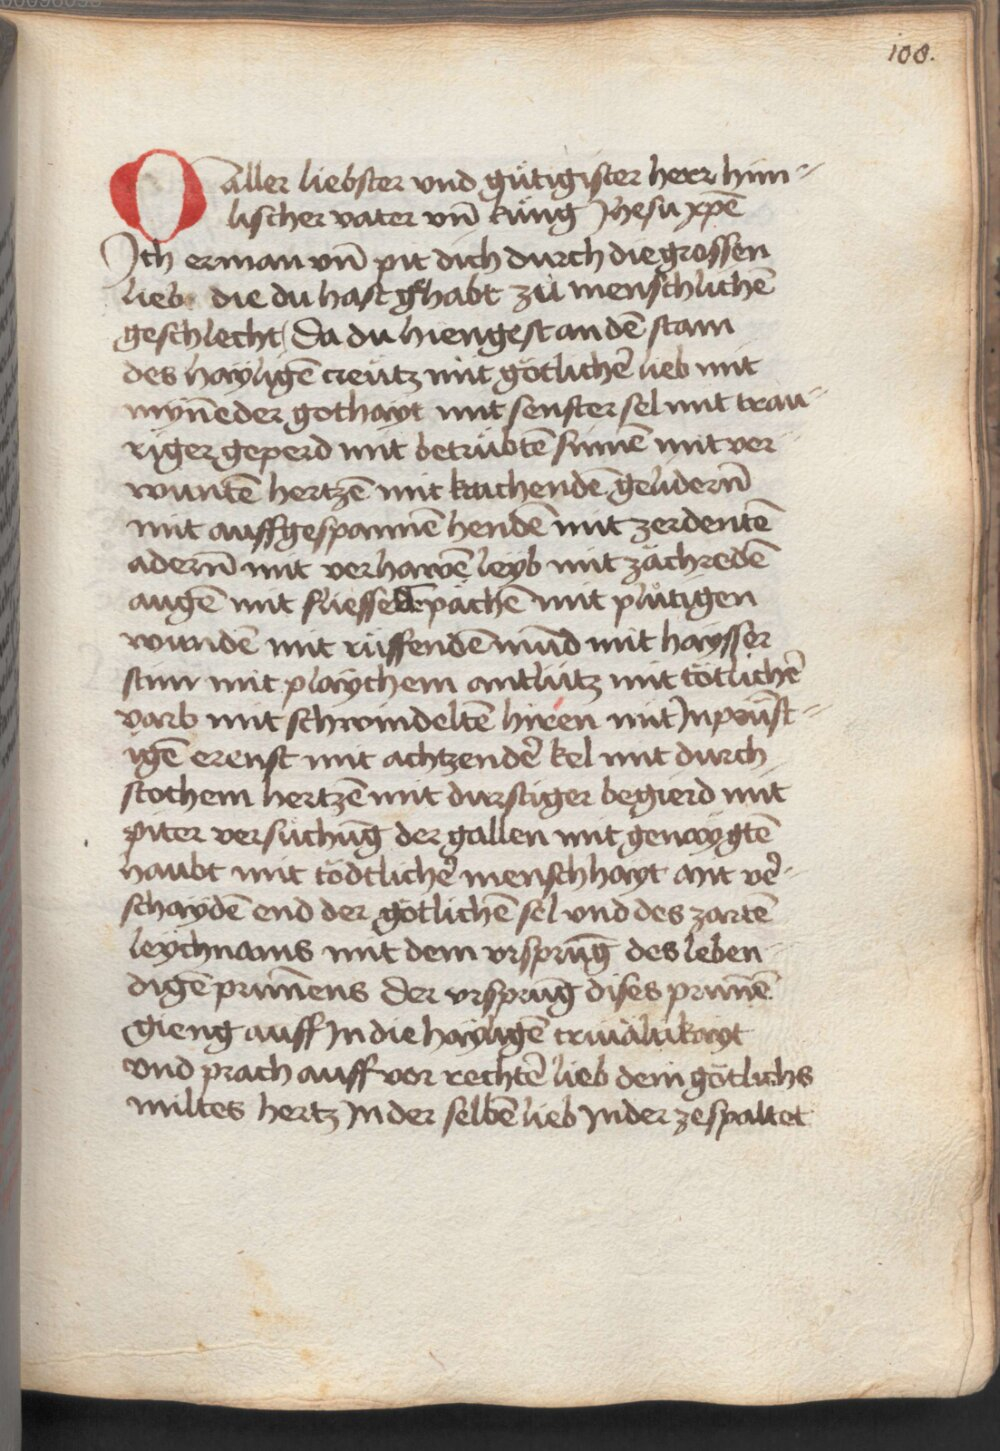 108.
O Aller liebster vnd gütigister herr him-
lischer vater vn̄ küng Jhesu xp̄ē
Ich erman vn̄ pit dich durch die grossen
lieb die du hast ghabt zů menschlichē
geschlecht Da du hiengest an dē stam
des hayligē creütz mit götlicher̄ lieb mit
myn̄eder gothayt mit senfter sel mit trau-
riger geperd mit betrübtē sinnē mit ver
wuntē hertzē mit krachendē gelidern̄
mit auffgespannē hendē mit zerdentē
adern̄ mit verhawē leyb mit zächredē
augē mit fliessedē pächē mit plůtigen
wundē mit rüffendē mūd mit haysser
stim mit playchem antlütz mit tötlicher̄
varb mit schwindeltē hiren mit Inprūst-
igē erenst mit achtzender̄ kel mit durch
stochem hertzē mit durstiger begierd mit
piter versůchūg der gallen mit genaygtē
haubt mit tödtlicher̄ menschhayt mit ver̄-
schaydē end der götlichē sel vnd des zartē
leychnams mit dem vrsprūg des leben
digē prun̄ens der vrsprūg dises prun̄ē
gieng auff In die hayligē triualitkayt
vnd prach auff vor rechter̄ lieb dein götlichs
miltes hertz In der selbē lieb In der zespaltet